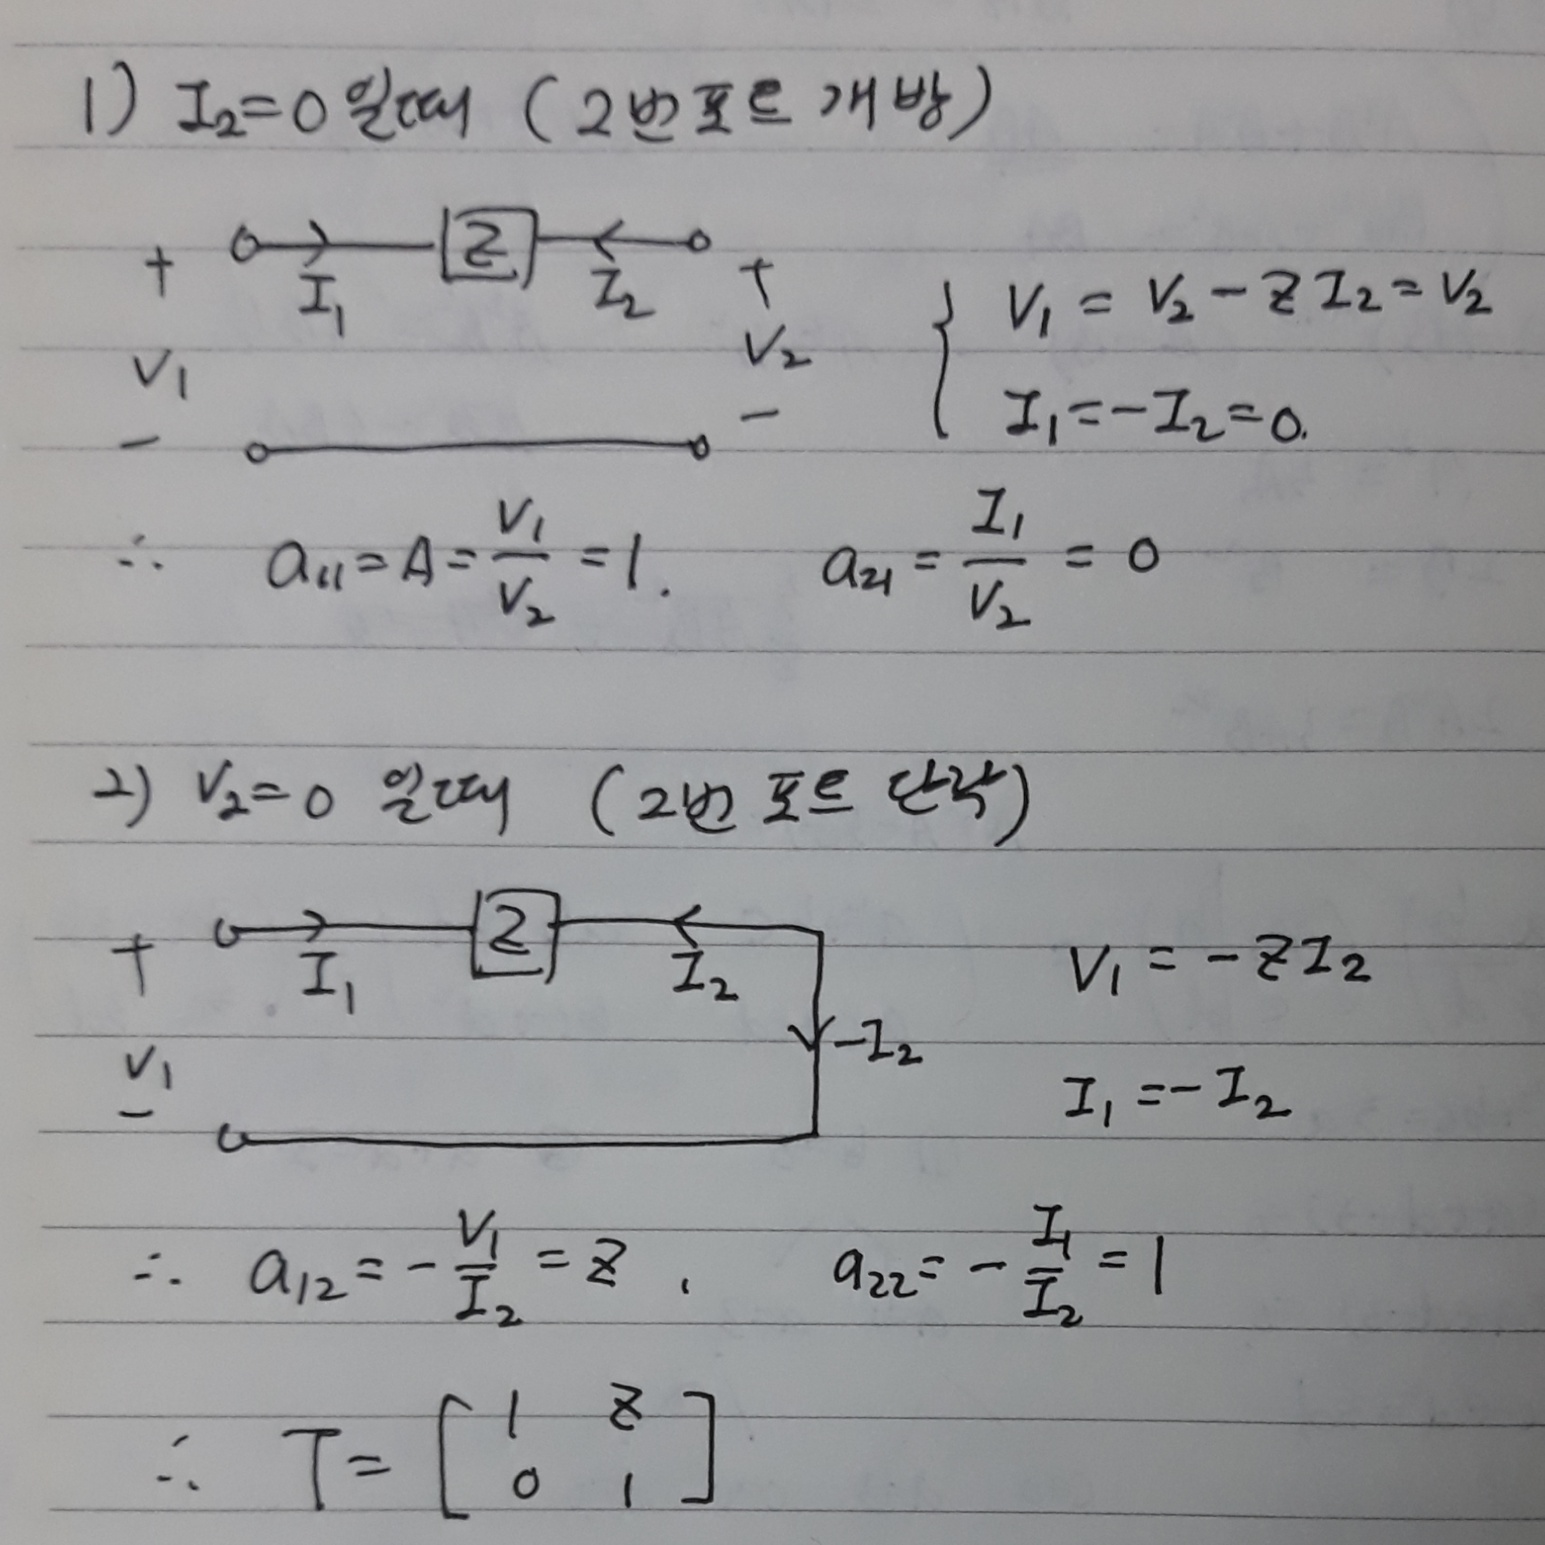 1) I₂=0 일때 (2번 포트 개방)
+ Z +
I₁ I₂
V₁ V₂
− −
V₁ = V₂ − ZI₂ = V₂
I₁=−I₂=0.
∴ a₁₁=A=V₁/V₂=1. a₂₁=I₁/V₂=0
2) V₂=0 일때 (2번 포트 단락)
+ Z
I₁ I₂
V₁ −I₂
−
V₁ = −ZI₂
I₁=−I₂
∴ a₁₂=−V₁/I₂=Z, a₂₂=−I₁/I₂=1
∴ T=[1 Z
0 1]